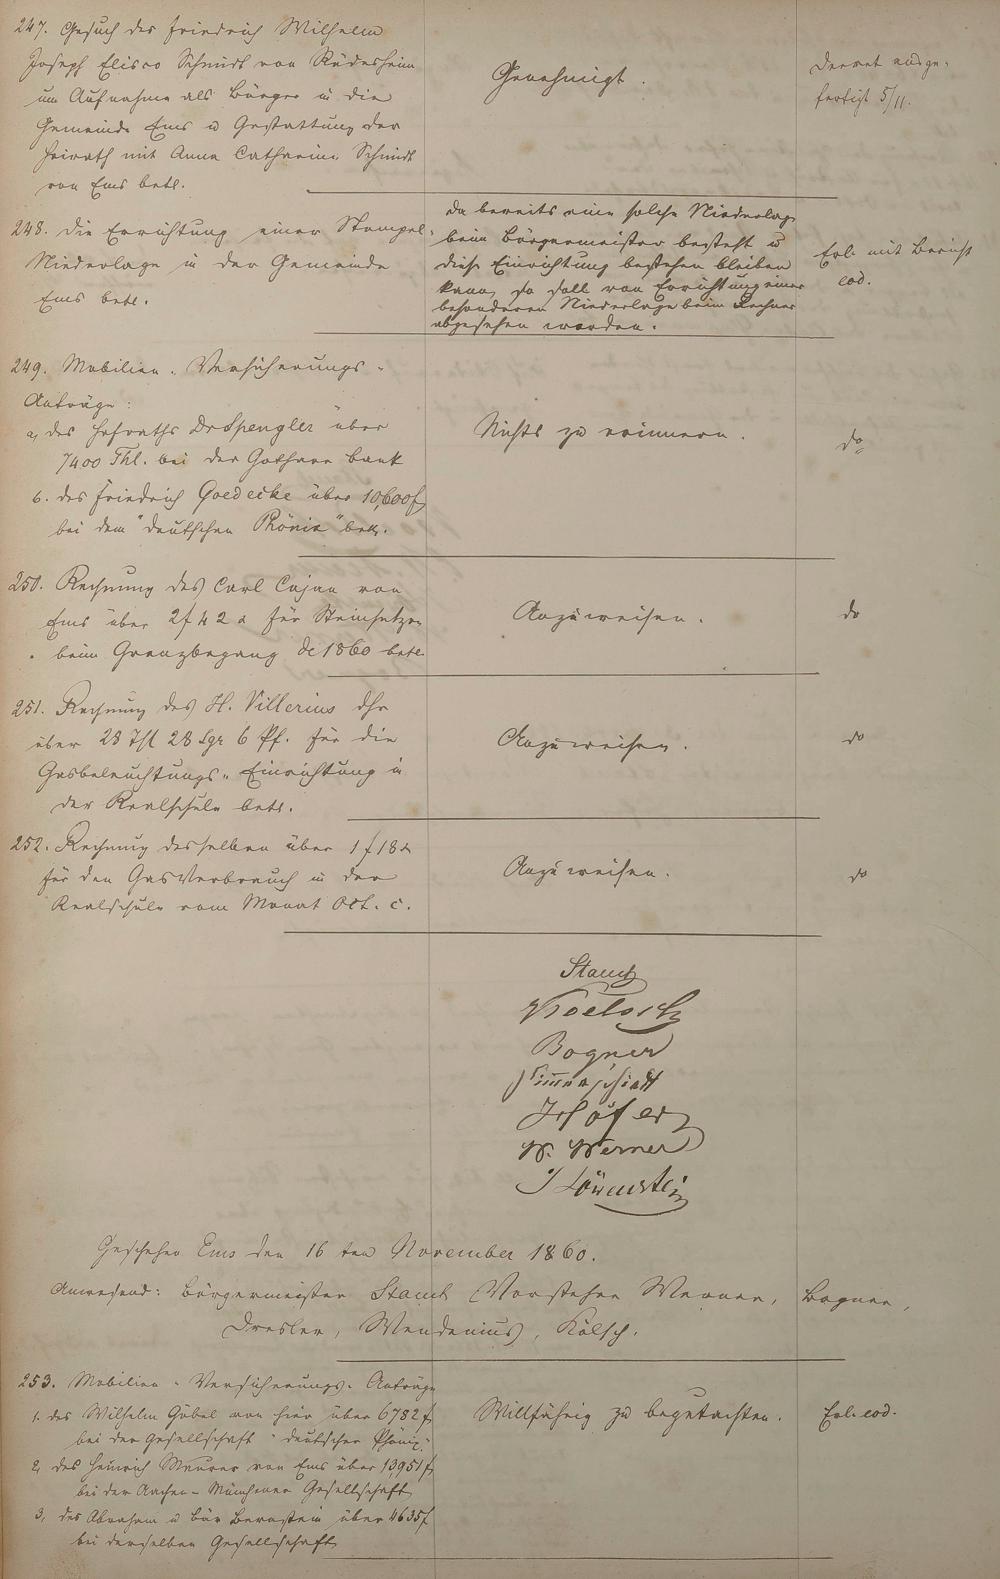 247. Gesuch des Friedrich Wilhelm
Joseph Eliseo Schmidt von Rüdesheim
um Aufnahme als Bürger in die
Gemeinde Ems u Gestattung der
Heirath mit Anna Catharina Schmidt
von Ems betr.
Genehmigt.
Decret ausge-
fertigt 5/11.
248. Die Errichtung einer Stempel-
Niederlage in der Gemeinde
Ems betr.
Da bereits eine solche Niederlage
beim Bürgermeister besteht u
diese Einrichtung bestehen bleiben
kann, so soll von Errichtung einer
besonderen Niederlage beim Rechner
abgesehen werden.
Erl. mit Bericht
eod.
249. Mobilien-Versicherungs-
Anträge:
a, des Hofraths Dr Spengler über
7400 Thl. bei der Gothaer Bank
b. des Friedrich Goedecke über 10,600 f
bei dem "deutschen Phönix" betr.
Nichts zu erinnern.
do
250. Rechnung des Carl Cajan von
Ems über 2 f 42 x für Steinsetzen
beim Grenzbegang de 1860 betr.
Anzuweisen.
do
251. Rechnung des H. Villerius dhr
über 28 Thl 28 Sgr 6 Pf. für die
Gasbeleuchtungs-Einrichtung in
der Realschule betr.
Anzuweisen.
do
252. Rechnung desselben über 1 f 18 x
für den Gasverbrauch in der
Realschule vom Monat Oct. c.
Anzuweisen.
do
Bogner
W. Werner
J Löwenstein
Geschehen Ems den 16ten November 1860.
Anwesend: Bürgermeister Vorsteher Werner, Bogner,
Dresler, Wendenius, Kölsch.
253. Mobilien-Versicherungs-Anträge
1. des Wilhelm Göbel von hier über 6782 f
bei der Gesellschaft "deutscher Phönix"
2, des Heinrich Maurer von Ems über 13,951 f
bei der Aachen-Münchener Gesellschaft
3, des Abraham u Bär Bernstein über 4635 f
bei derselben Gesellschaft
Willfährig zu begutachten.
Erl. eod.